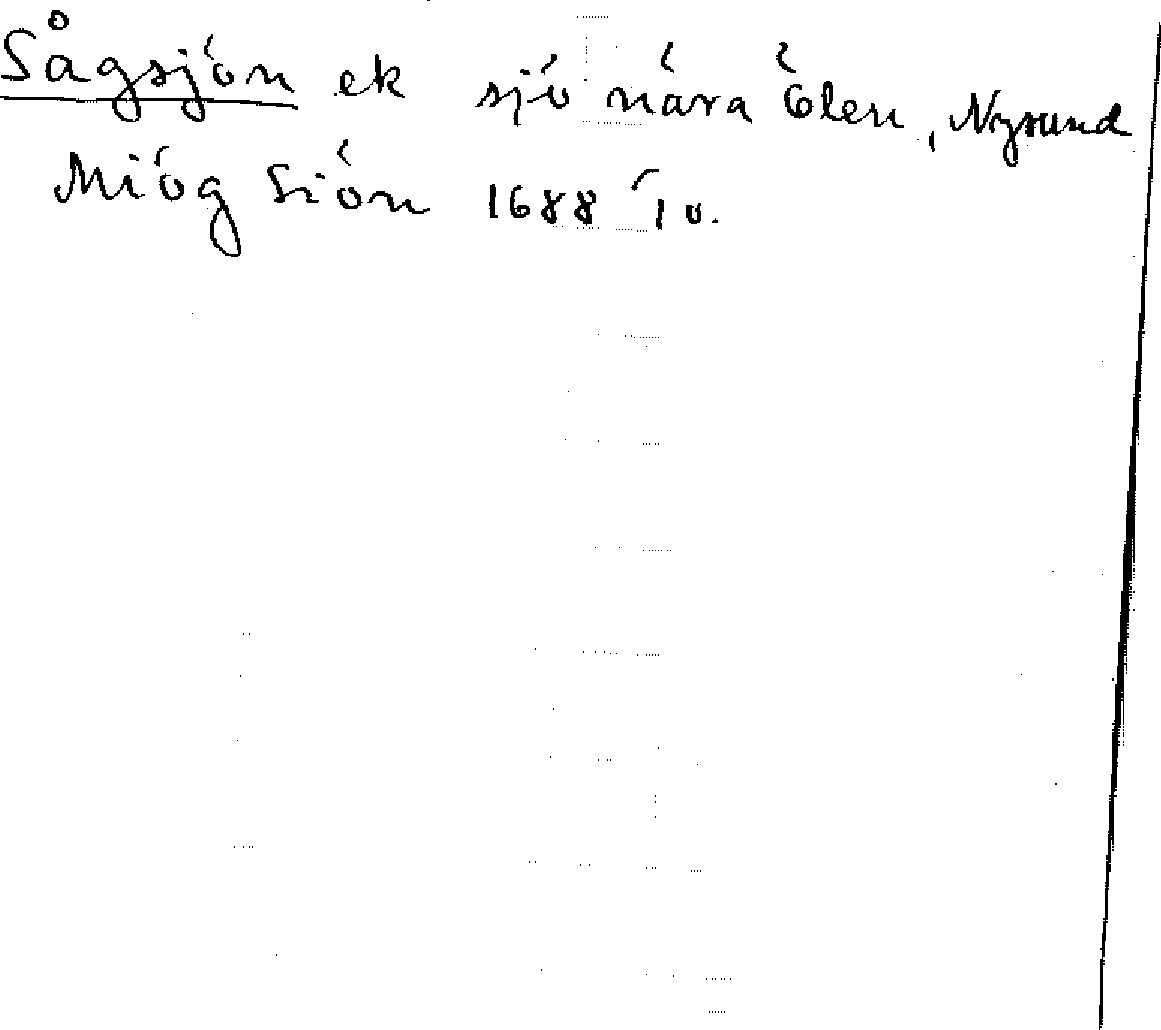 Sågsjön ek sjö nära Ölen, Nysund
Miög Siön 1688 Jv.